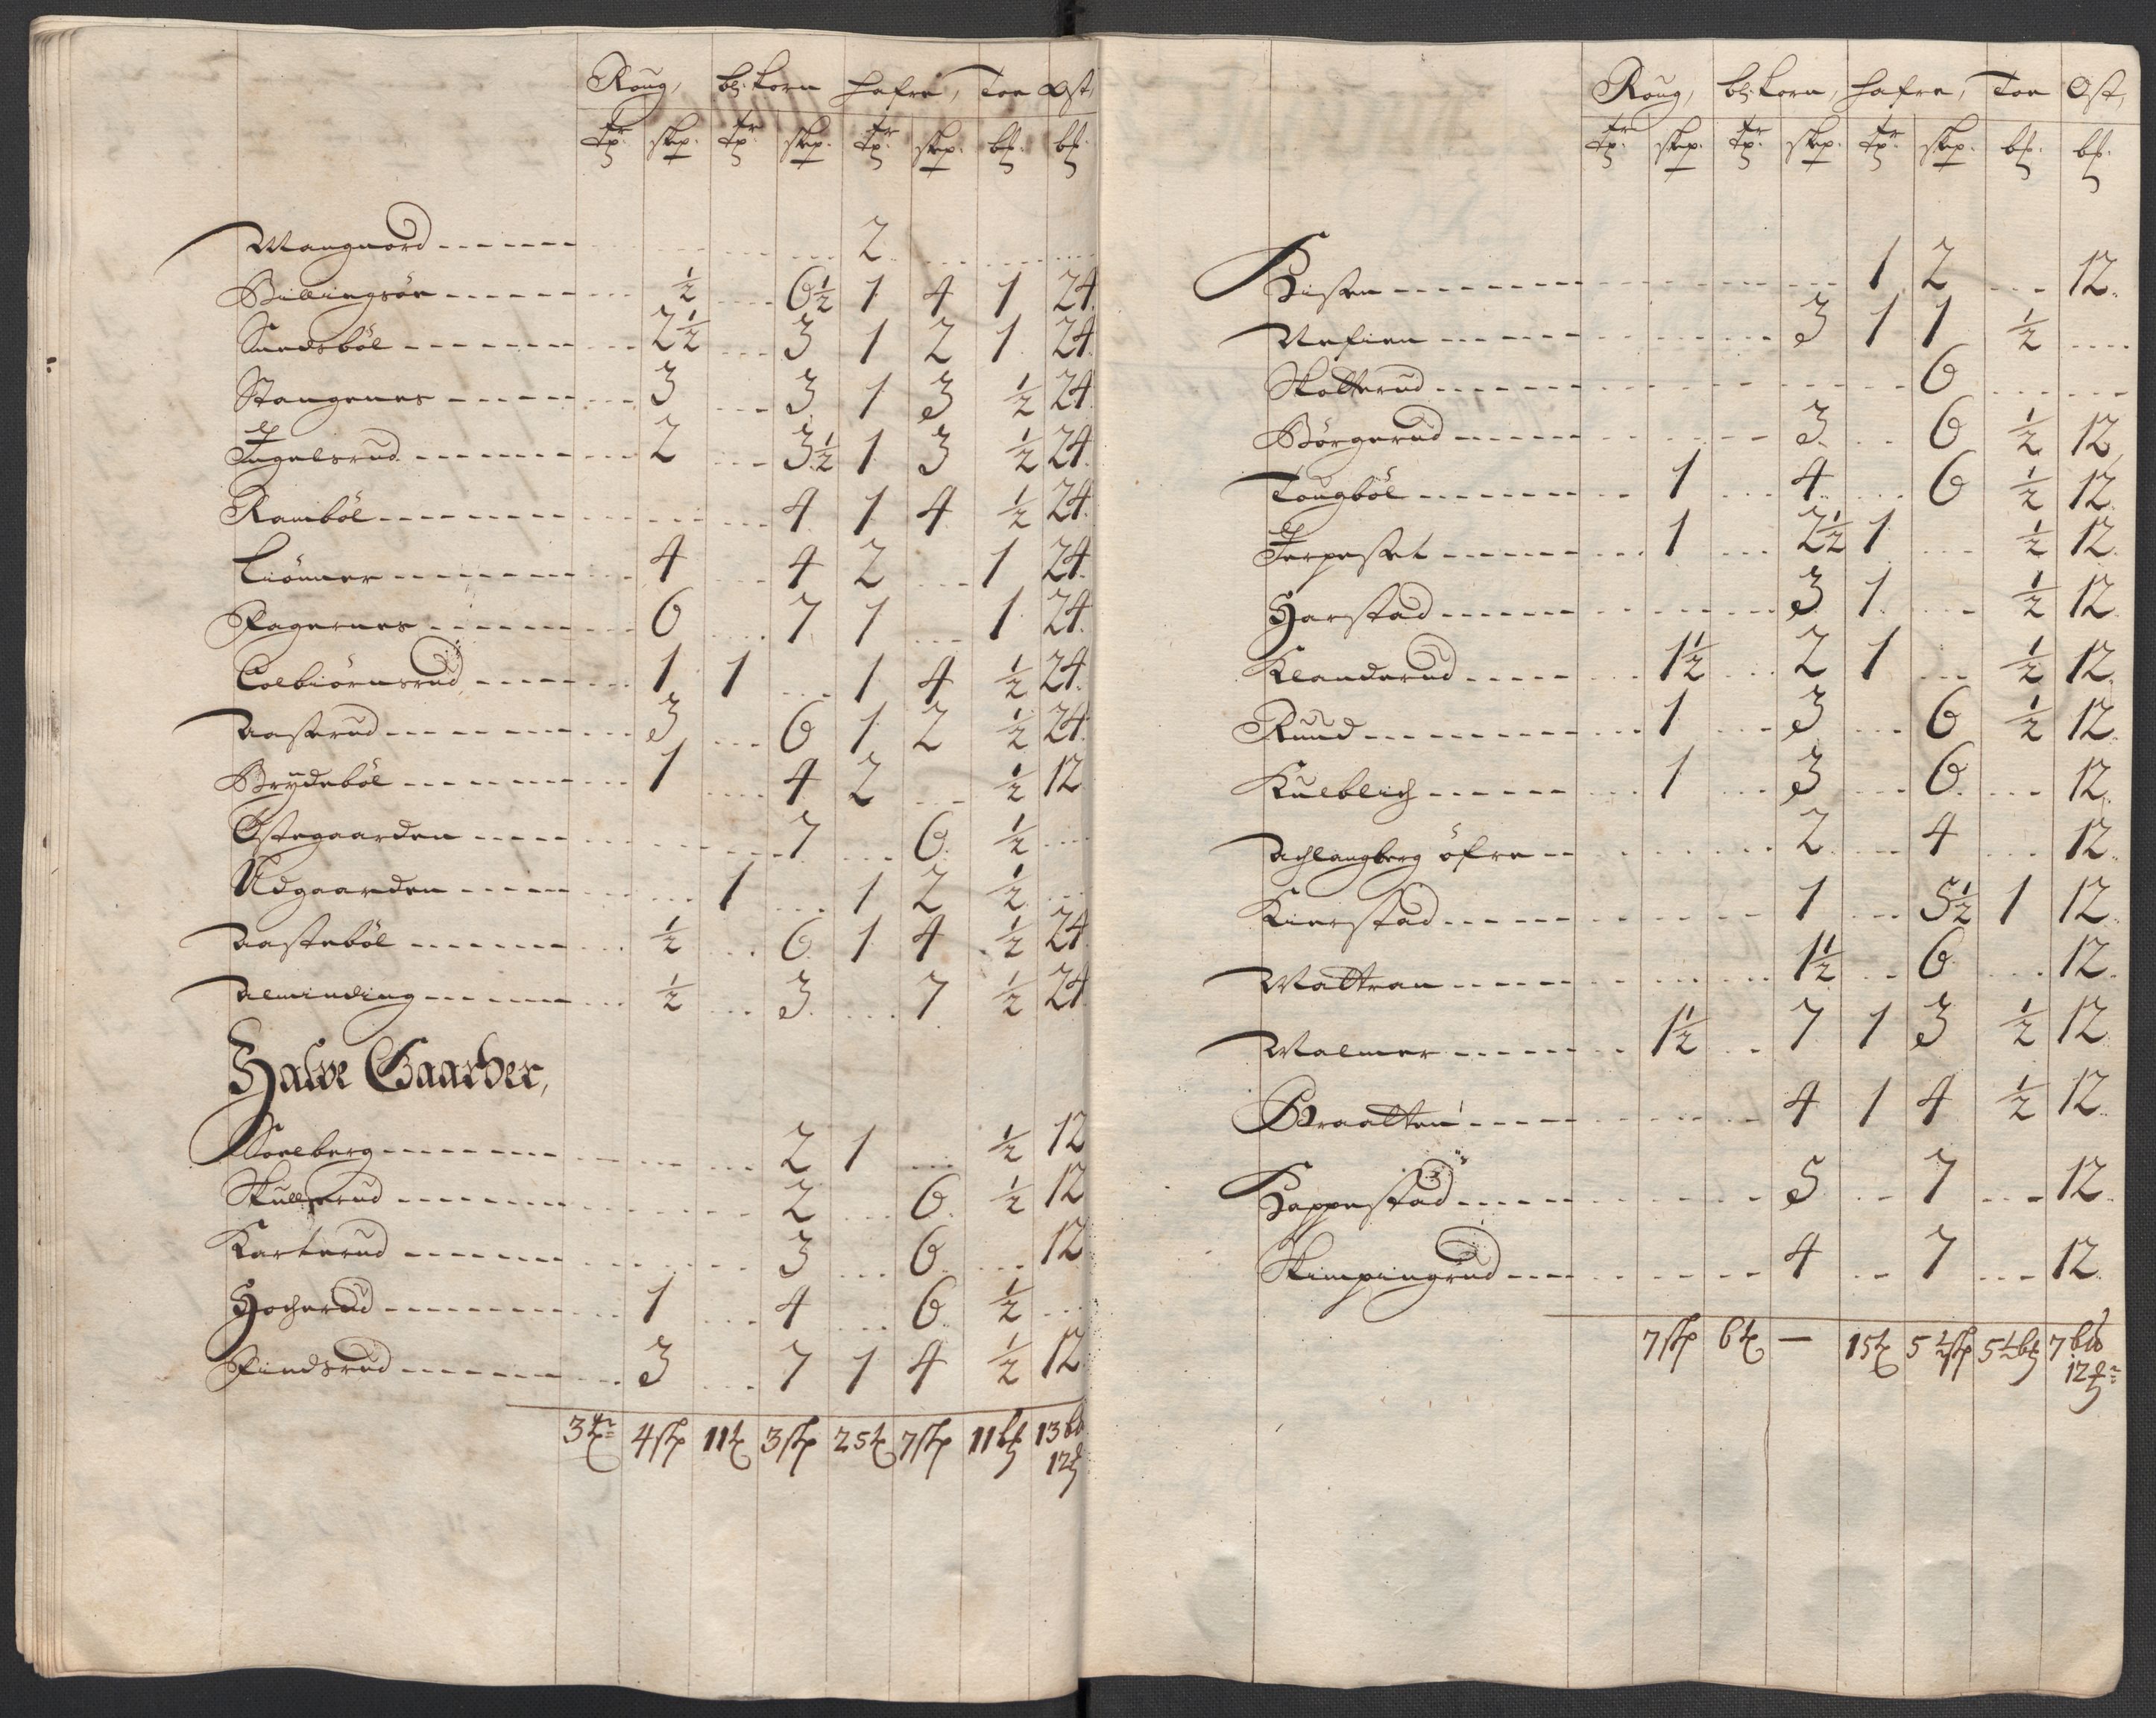 Roug, bl: korn hafre, Toe Ost,
tr. skp. tr. skp. tr. skp. bs. bs.
Mangnord 2
Billingsøe ½ 6½ 1 4 1 24.
Sundsböl 2½ 3 1 2 1 24.
Stangenes 3 3 1 3 ½ 24.
Ingelsrud 2 3½ 1 3 ½ 24.
Ramböl 4 1 4 ½ 24.
Liönner 4 4 2 1 24.
Fagernes 6 7 1 1 24.
Colbiörnsrud 1 1 1 4 ½ 24.
Aasterud 3 6 1 2 ½ 24.
Brÿdeböl 1 4 2 ½ 12
Östegaarden 7 6 ½
Udgaarden 1 1 2 ½
Aasteböl ½ 6 1 4 ½ 24
Alminding ½ 3 7 ½ 24
Halve Gaarder,
Soelberg 2 1 ½ 12
Skullerud 2 6 ½ 12
Karterud 3 6 12
Hocherud 1 4 6 ½
Findsrud 3 7 1 4 ½ 12
3 tr 4 skp 11 t 3 skp 25 t 7 skp 11 bs 13 bs
12
Roug, bl: korn, hafre, Toe Ost,
tr. skp. tr. skp. tr. skp. bs. bs.
1 2 12.
3 1 1 ½
Skotterud 6
Börgerud 3 6 ½ 12
Tougböl 1 4 6 ½ 12
Jerpesset 1 2½ 1 ½ 12
Harstad 3 1 ½ 12
Klanderud 1½ 2 1 ½ 12
Ruud 1 3 6 ½ 12
Kulblich 1 3 6 12
Achlangberg öfre 2 4 12
Kierstad 1 5½ 1 12
Mattran 1½ 6 12
Malmer 1½ 7 1 3 ½ 12
Braatten 4 1 4 ½ 12
Happestad 5 7 12
Skimpingrud 4 7 12
7 skp 6 t — 15 t 5½ skp 5½ bs 7 bs
12